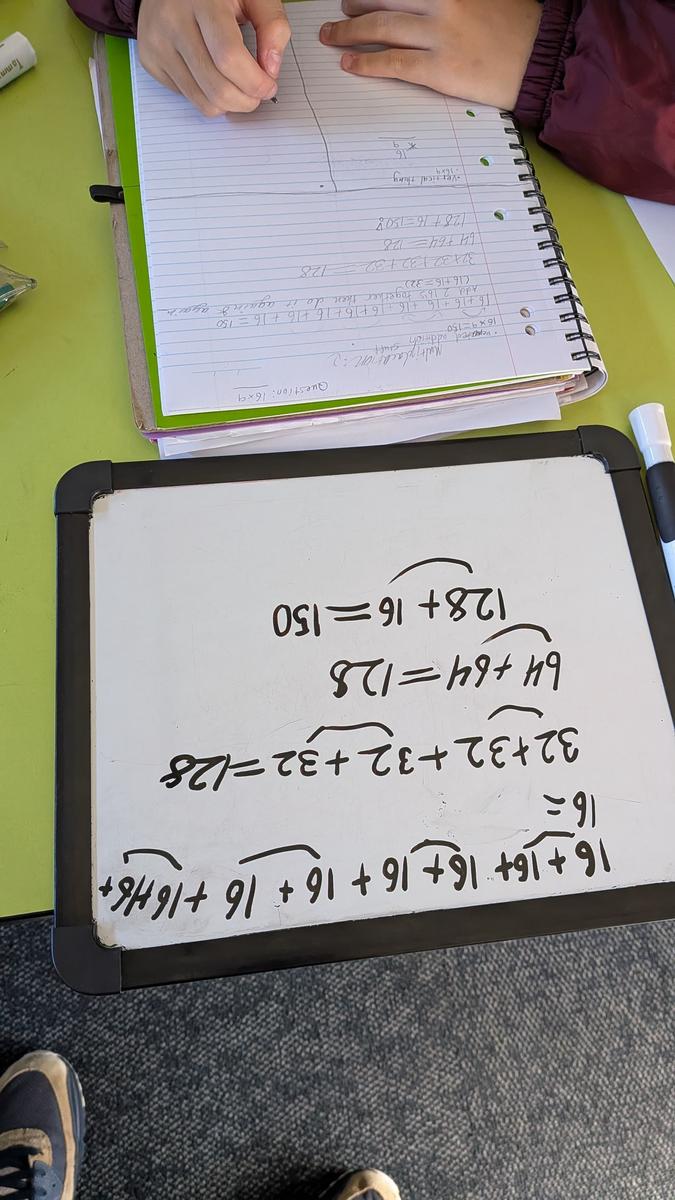 16 + 16+ 16+ 16 + 16 + 16 + 16+16+
16 =
32+32 +32+32 =128
64+64=128
128+16=150
Question: 16x9
Multiplacation :)
addition stuff
16x9=150
16+16+16+16+16+16+16+16+16=150
Add 2 16s together then do it again & again
(16+16=32)
32+32+32+32 = 128
64+64 = 128
128+16=150
• vertical thing
• 16x9
16
× 9